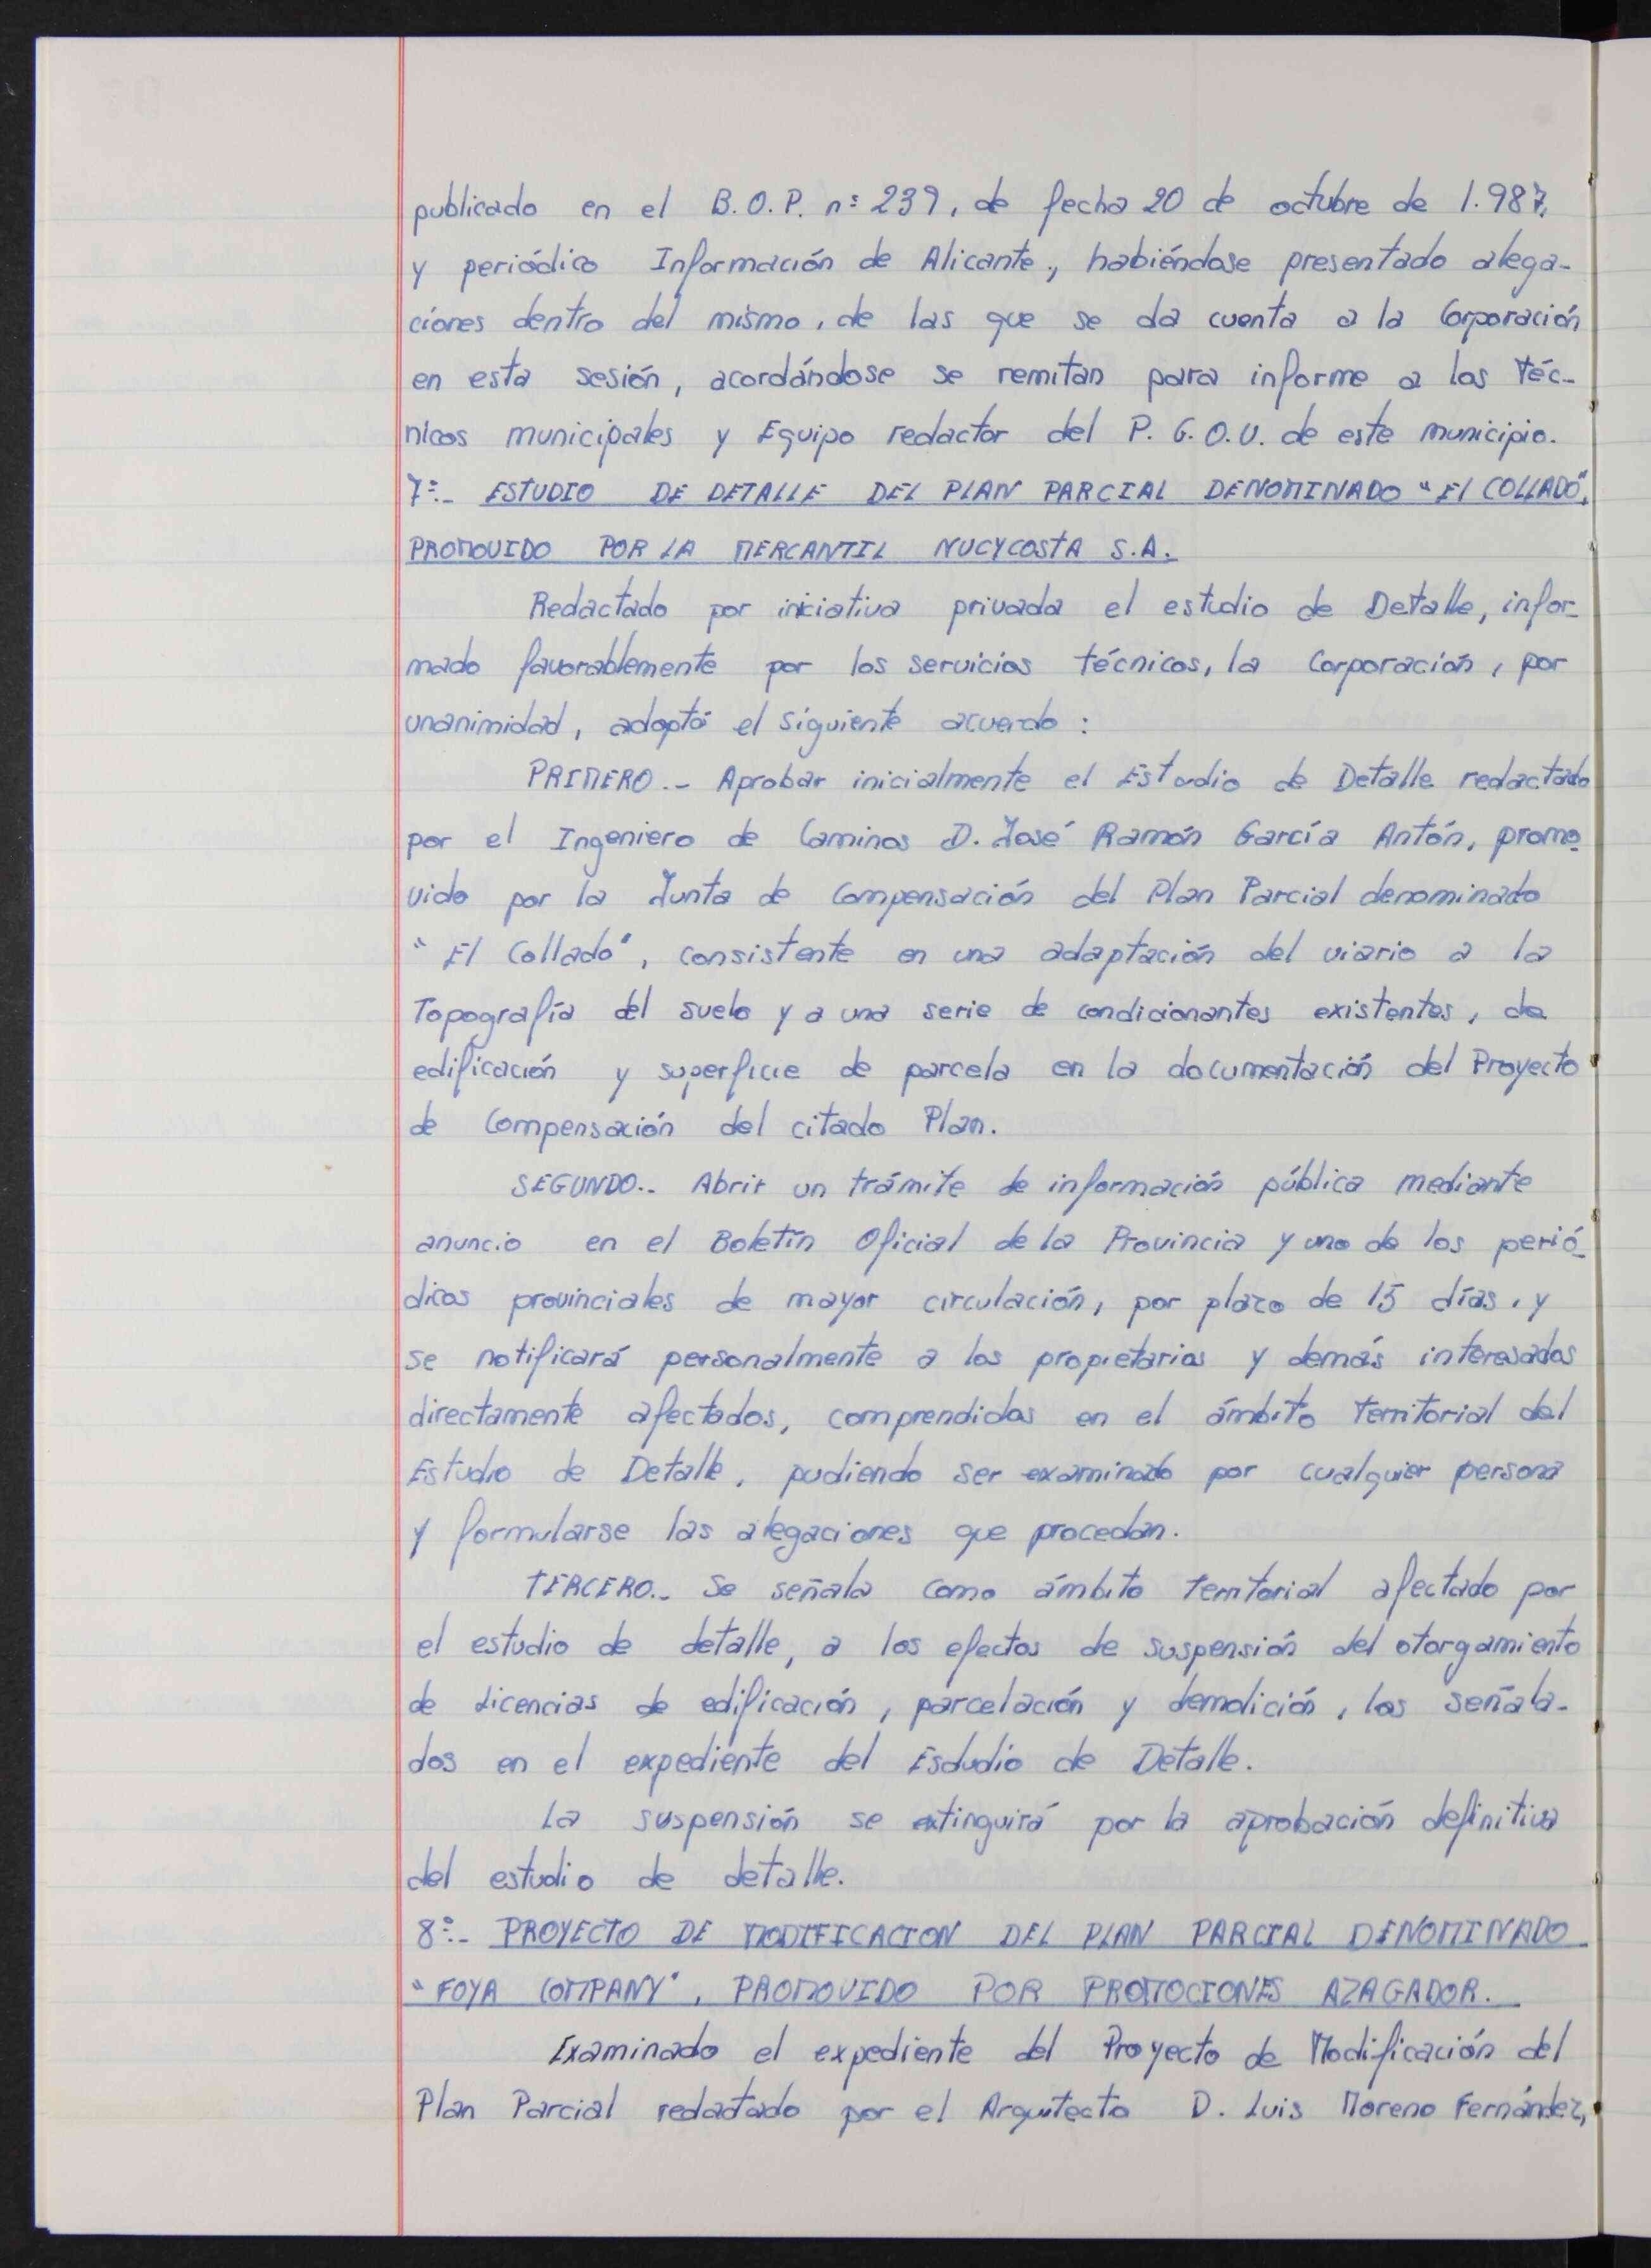 publicado en el B.O.P. nº 239, de fecha 20 de octubre de 1.987,
y periódico Información de Alicante, habiéndose presentado alega-
ciones dentro del mismo, de las que se da cuenta a la Corporación
en esta sesión, acordándose se remitan para informe a los Téc-
nicos municipales y Equipo redactor del P. G. O. U. de este municipio.
7º.- ESTUDIO DE DETALLE DEL PLAN PARCIAL DENOMINADO "El COLLADO",
PROMOVIDO POR LA MERCANTIL NUCYCOSTA S.A.
Redactado por iniciativa privada el estudio de Detalle, infor-
mado favorablemente por los servicios técnicos, la Corporación, por
unanimidad, adoptó el siguiente acuerdo:
PRIMERO.- Aprobar inicialmente el Estudio de Detalle redactado
por el Ingeniero de Caminos D. José Ramón García Antón, promo-
vido por la Junta de Compensación del Plan Parcial denominado
"El Collado", consistente en una adaptación del viario a la
Topografía del suelo y a una serie de condicionantes existentes, de
edificación y superficie de parcela en la documentación del Proyecto
de Compensación del citado Plan.
SEGUNDO.- Abrir un trámite de información pública mediante
anuncio en el Boletín Oficial de la Provincia y uno de los perió-
dicos provinciales de mayor circulación, por plazo de 15 días, y
se notificará personalmente a los propietarios y demás interesados
directamente afectados, comprendidos en el ámbito territorial del
Estudio de Detalle, pudiendo ser examinado por cualquier persona
y formularse las alegaciones que procedan.
TERCERO.- Se señala como ámbito territorial afectado por
el estudio de detalle, a los efectos de suspensión del otorgamiento
de Licencias de edificación, parcelación y demolición, los señala-
dos en el expediente del Esdudio de Detalle.
La suspensión se extinguirá por la aprobación definitiva
del estudio de detalle.
8º.- PROYECTO DE MODIFICACION DEL PLAN PARCIAL DENOMINADO
"FOYA COMPANY", PROMOVIDO POR PROMOCIONES AZAGADOR.
Examinado el expediente del Proyecto de Modificación del
Plan Parcial redactado por el Arquitecto D. Luis Moreno Fernández,